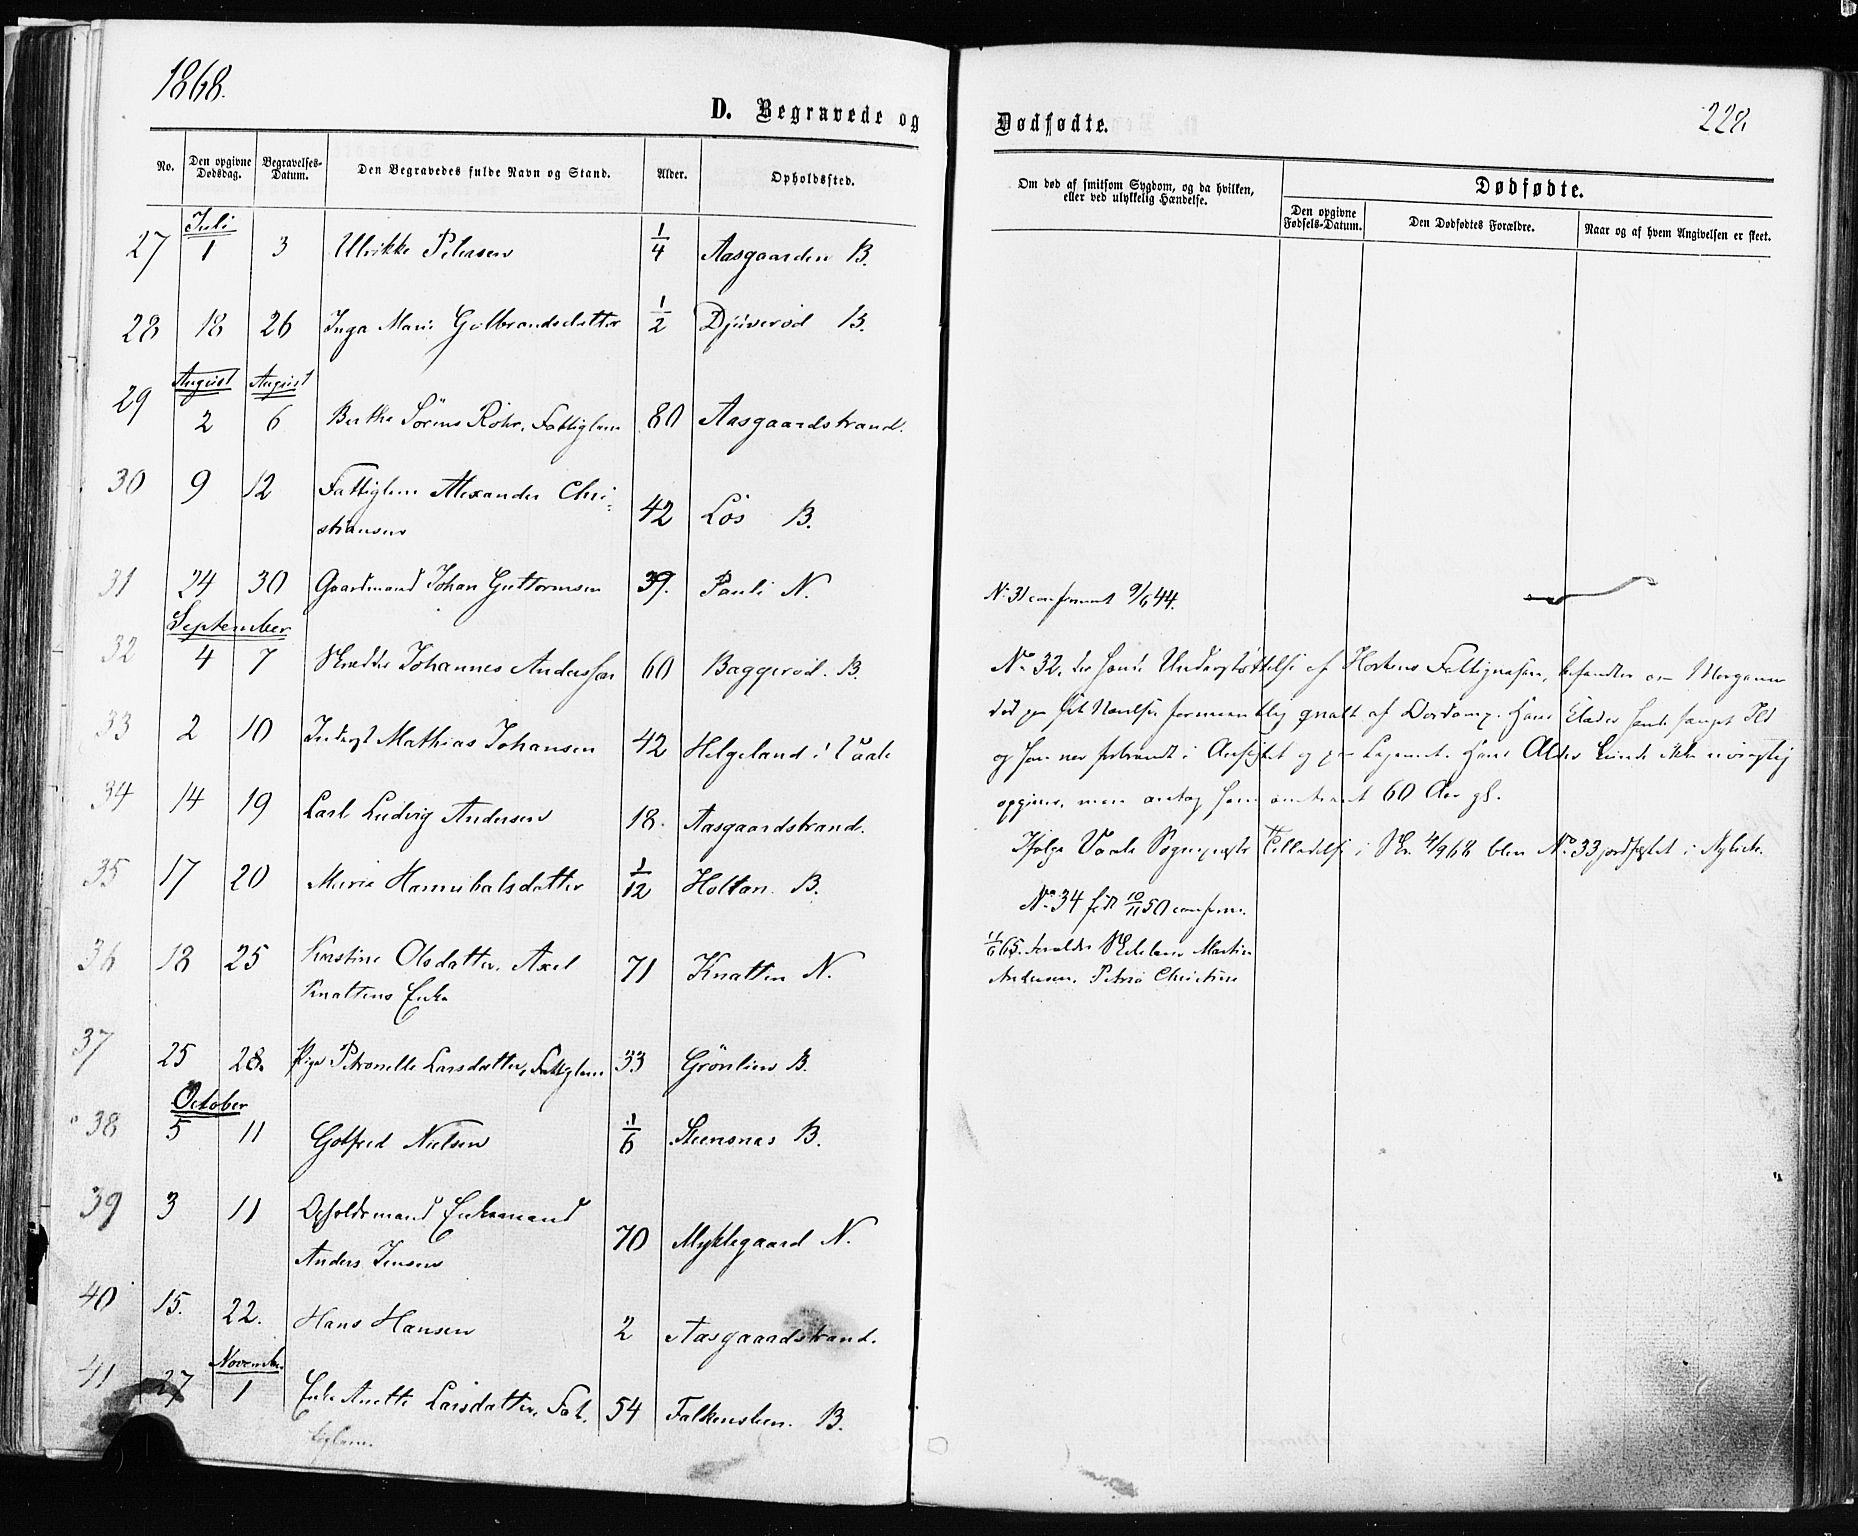 1868.
D. Begravede og
No. Den opgivne Dødsdag. Begravelses-Datum. Den Begravedes fulde Navn og Stand. Alder. Opholdssted.
Juli
27 1 3 Ulrikke Petersen 1/4 Aasgaarden B.
28 18 26 Inga Marie Gulbrandsdatter 1/2 Djuverød B.
August August
29 2 6 Berthe Sörens Röhr, Fattiglem 80 Aasgaardstrand.
30 9 12 Fattiglem Alexander Chri-
stiansen 42 Lös B.
31 24 30 Gaardmand Johan Guttormsen 39. Pauli N.
September
32 4 7 Skrædder Johannes Anderssen 60 Baggerød. B.
33 2 10 Inderst Mathias Johansen 42 Helgeland i Vaale
34 14 19 Carl Ludvig Andersen 18. Aasgaardstrand.
35 17 20 Maria Hannibalsdatter 1/12 Holtan. B.
36 18 25 Kirstine Olsdatter, Axel
Knattens Enke 71 Knatten N.
37 25 28. Pige Petronelle Larsdatter, Fattiglem 33 Grönlien B.
October
38 5 11 Gotfred Nielsen 1/6 Steensnæs B.
39 3 11 Opholdsmand Enkemand
Anders Jensen 70 Myklegaard N.
40 15. 22. Hans Hansen 2 Aasgaardstrand.
November
41 27 1 Enke Anette Larsdatter, Fat-
tiglem. 54 Falkensteen. B.
Dødfødte.
228.
Om død af smitsom Sygdom, og da hvilken, eller ved ulykkelig Hændelse.
Dødfødte.
Den opgivne Fødsels-Datum. Den Dødfødtes Forældre. Naar og af hvem Angivelsen er skeet.
No 31 confirmeret 9/6 44.
No 32, der havde Understøttelse af Hortens Fattigvæsen, befandtes om Morgenen
død paa sit Værelse formentlig qvalt af Dordamp. Hans Klæder havde fanget Ild
og han var forbrændt i Ansigtet og paa Legemet. Hans Alder kunde ikke nøiagtig
opgives, men antog ham omtrent 60 Aar gl.
Ifølge Vaale Sognepræsts Tilladelse i Skr. 4/9 68 blev No 33 jordfæstet i Nykirke.
No 34 født 10/11 50 confirm.
11/6 65. Forældre Martin
Andersen, Petrea Christine